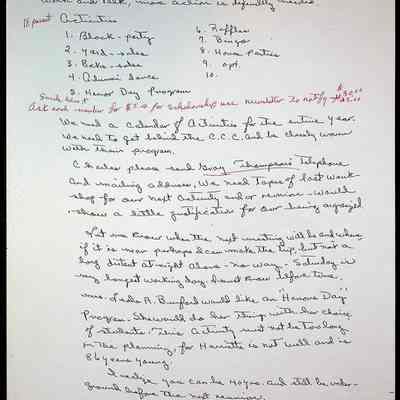 work and talk, more action is definitely needed.
18 point Activities
1. Block-party
2. Yard-sales
3. Bake-sales
4. Alumni dance
5. Honor Day Program
6. Raffles
7. Bingo
8. House Parties
9. opt.
10.
Ask each member for $5.00 for scholarship use newsletter to notify
We need a Calendar of Activities for the entire year.
We need to get behind the C.C.C. and be clearly warm
with their program.
Charles please send Gray Thompson's Telephone
and mailing address. We need tapes of last work
shop for our next Activity and or reunion - would
show a little justification for our being
Let me know when the next meeting will be and where
if it is near perhaps I can make the trip, but not a
long distant at night alone - no way. Saturday is
my longest working day. I must know before time.
Mrs. Leola A. Bumford would like an "Honors Day"
Program. She would do her thing with her choice
of students. This Activity must not be too long
in the planning, for Harriette is not well and is
86 years young.
I realize you can be 40 yrs. and still be under-
ground before the next reunion.